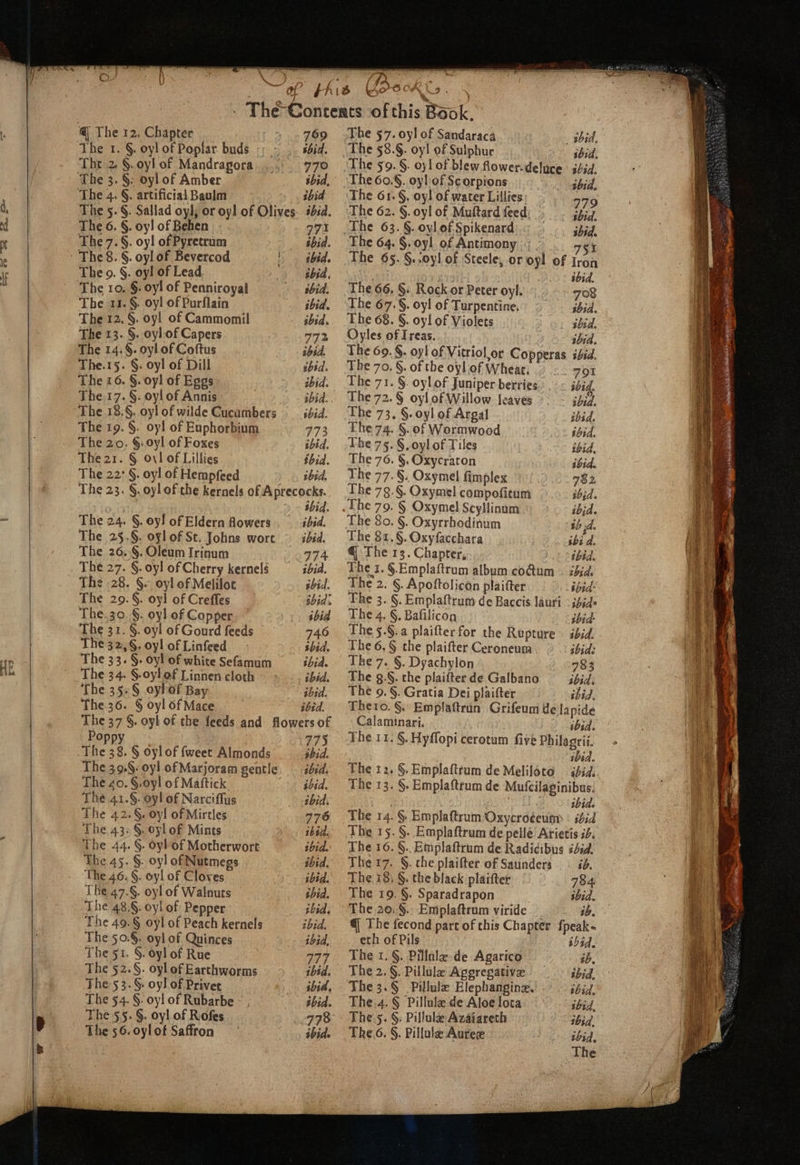 of this Book
The Contents of this Book.
¶ The 12. Chapter 769
The 1. §. oyl of Poplar buds ibid.
The 2. §. oyl of Mandragora 770
The 3. §. oyl of Amber ibid,
The 4. §. artificial Baulm ibid
The 5. §. Sallad oyl, or oyl of Olives ibid.
The 6. §. oyl of Behen 771
The 7. §. oyl of Pyretrum ibid.
The 8. §. oyl of Bevercod ibid.
The 9. §. oyl of Lead ibid,
The 10. §. oyl of Penniroyal ibid.
The 11. §. oyl of Purſlain ibid.
The 12. §. oyl of Cammomil ibid.
The 13. §. oyl of Capers 772
The 14. §. oyl of Coſtus ibid.
The.15. §. oyl of Dill ibid.
The 16. §. oyl of Eggs ibid.
The 17. §. oyl of Annis ibid.
The 18.§. oyl of wilde Cucumbers ibid.
The 19. §. oyl of Euphorbium 773
The 20. §. oyl of Foxes ibid.
The 21. § oyl of Lillies ibid.
The 22. §. oyl of Hempſeed ibid,
The 23. §. oyl of the kernels of Aprecocks.
ibid.
The 24. §. oyl of Eldern flowers ibid.
The 25.§. oyl of St. Johns wort ibid.
The 26. §. Oleum Irinum 774
The 27. §. oyl of Cherry kernels ibid.
The 28. §. oyl of Melilot ibid.
The 29. §. oyl of Creſſes ibid.
The.30 §. oyl of Copper ibid
The 31. §. oyl of Gourd ſeeds 746
The 32, §. oyl of Linſeed ibid.
The 33. §. oyl of white Seſamum ibid.
The 34. §. oyl of Linnen cloth ibid.
The 35. § oyl of Bay ibid.
The 36. § oyl of Mace ibid.
The 37 §. oyl of the ſeeds and flowers of
Poppy 775
The 38. § oyl of ſweet Almonds ibid.
The 39.§. oyl of Marjoram gentle ibid.
The 40. §. oyl of Maſtick ibid.
The 41.§. oyl of Narciſſus ibid.
The 42. §. oyl of Mirtles 776
The 43. §. oyl of Mints ibid.
The 44. §. oyl of Motherwort ibid.
The 45. §. oyl of Nutmegs ibid.
The 46. §. oyl of Cloves ibid.
The 47.§. oyl of Walnuts ibid.
The 48.§. oyl of Pepper ibid.
The 49. § oyl of Peach kernels ibid.
The 50.§. oyl of Quinces ibid,
The 51. §. oyl of Rue 777
The 52. §. oyl of Earthworms ibid.
The 53. §. oyl of Privet ibid,
The 54. §. oyl of Rubarbe ibid.
The 55. §. oyl of Roſes 778
The 56. oyl of Saffron ibid.
The 57. oyl of Sandaraca ibid.
The 58.§. oyl of Sulphur ibid.
The 59. §. oyl of blew flower-deluce ibid.
The 60.§. oyl of Scorpions ibid.
The 61. §, oyl of water Lillies 779
The 62. §. oyl of Muſtard ſeed ibid.
The 63. §. oyl of Spikenard ibid.
The 64. §. oyl of Antimony 751
The 65. §. oyl of Steele, or oyl of Iron
ibid.
The 66, §. Rock or Peter oyl. 708
The 67. §. oyl of Turpentine. ibid.
The 68. §. oyl of Violets ibid.
Oyles of Treas. ibid.
The 69. §. oyl of Vitriol or Copperas ibid.
The 70. §. of the oyl of Wheat. 791
The 71. § oyl of Juniper berries ibid.
The 72. § oyl of Willow leaves ibid.
The 73. §. oyl of Argal ibid.
The 74. §. of Wormwood ibid.
The 75. §. oyl of Tiles ibid.
The 76. §. Oxycraton ibid.
The 77. §. Oxymel ſimplex 782
The 78. §. Oxymel compoſitum ibid.
The 79. § Oxymel Scyllinum ibid.
The 80. §. Oxyrrhodinum ibid.
The 81. §. Oxyſacchara ibid.
¶ The 13. Chapter, ibid.
The 1. §. Emplaſtrum album coctum ibid.
The 2. §. Apoſtolicon plaiſter ibid.
The 3. §. Emplaſtrum de Baccis lauri ibid.
The 4. §. Baſilicon ibid.
The 5.§. a plaiſter for the Rupture ibid.
The 6. § the plaiſter Ceroneum ibid:
The 7. §. Dyachylon 783
The 8.§. the plaiſter de Galbano ibid.
The 9. §. Gratia Dei plaiſter ibid.
The 10. §. Emplaſtrun Griſeum de lapide
Calaminari. ibid.
The 11. §. Hyſſopi cerotum ſive Philagrii.
ibid.
The 12. §. Emplaſtrum de Meliloto ibid.
The 13. §. Emplaſtrum de Muſcilaginibus.
ibid.
The 14. §. Emplaſtrum Oxycroceum ibid
The 15. §. Emplaſtrum de pelle Arietis ib.
The 16. §. Emplaſtrum de Radicibus ibid.
The 17. §. the plaiſter of Saunders ib.
The 18. §. the black plaiſter 784
The 19. §. Sparadrapon ibid.
The 20. §. Emplaſtrum viride ib.
¶ The ſecond part of this Chapter ſpeak-
eth of Pils ibid.
The 1. §. Pillulæ de Agarico ib.
The 2. §. Pillulæ Aggregativæ ibid.
The 3. § Pillulæ Elephanginæ. ibid.
The.4. § Pillulæ de Aloe lota ibid,
The 5. §. Pillulæ Azaiareth ibid,
The 6. §. Pillulæ Aureæ ibid.
The